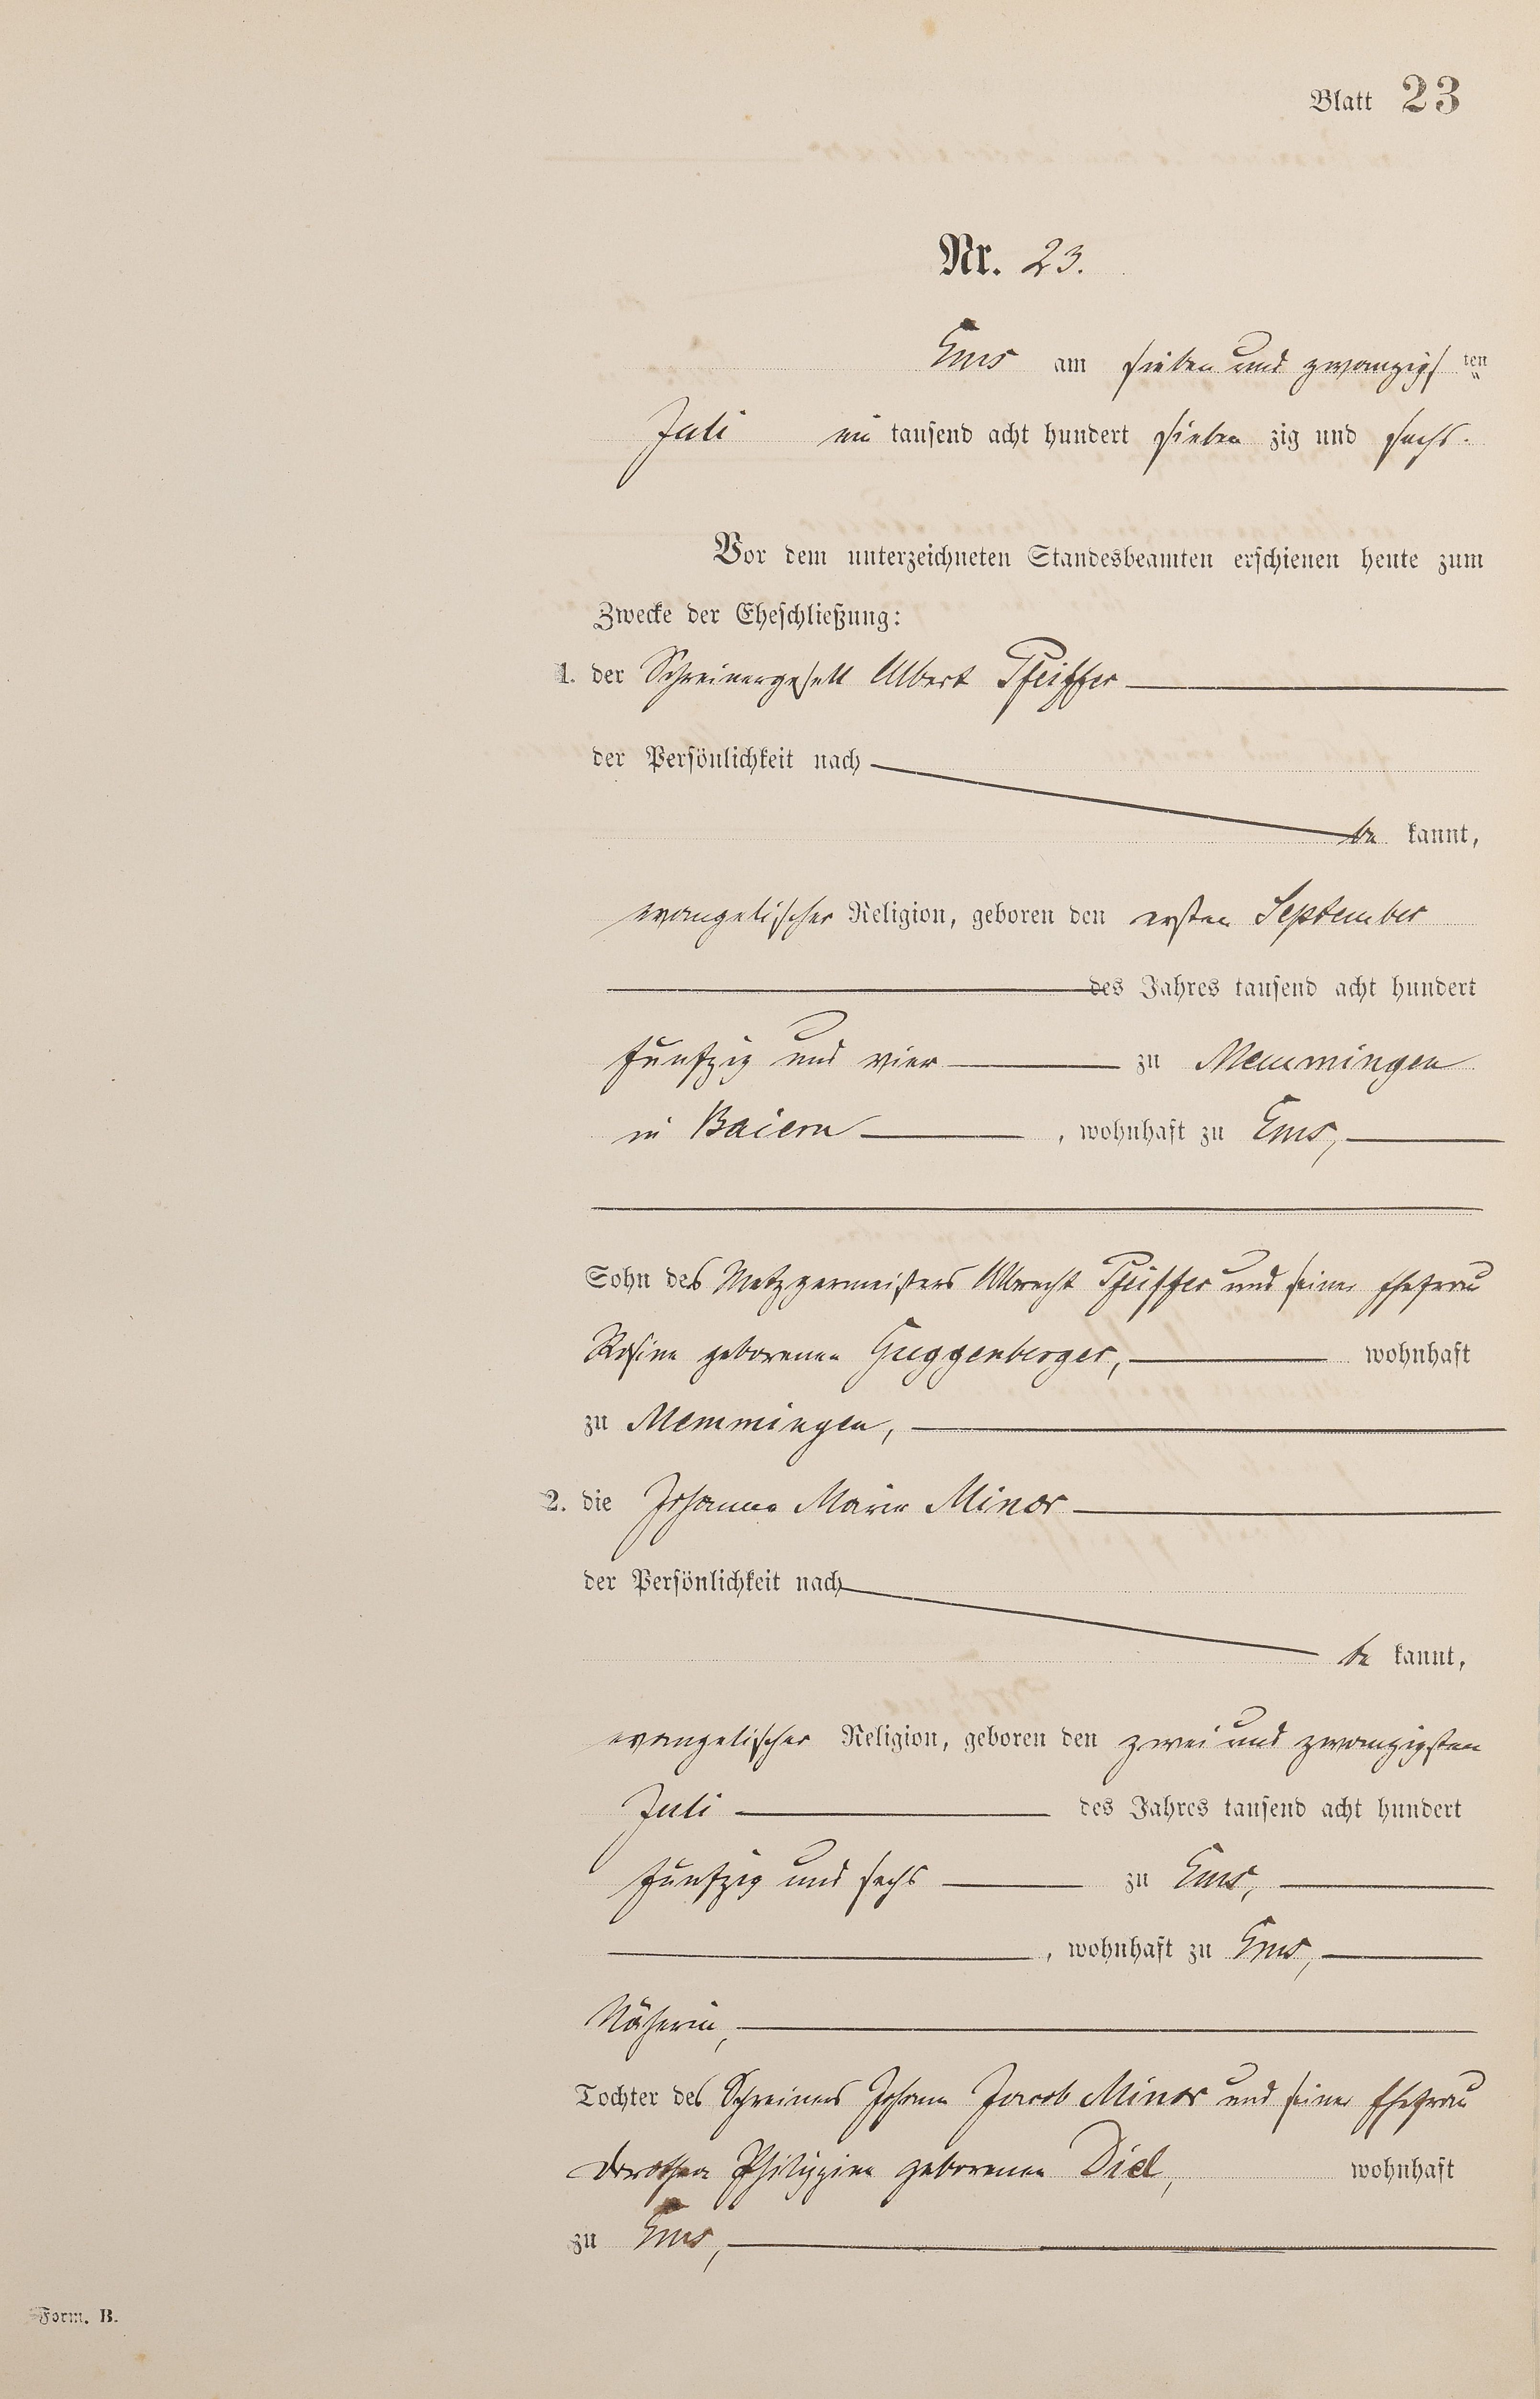 Blatt 23
Nr. 23.
Ems am sieben und zwanzigsten
Juli ein tausend acht hundert sieben zig und sechs.
Vor dem unterzeichneten Standesbeamten erschienen heute zum
Zwecke der Eheschließung:
1. der Schreinergesell Albert Pfeiffer
der Persönlichkeit nach
be kannt,
evangelischer Religion, geboren den ersten September
des Jahres tausend acht hundert
fünfzig und vier zu Memmingen
in Baiern, wohnhaft zu Ems,
Sohn des Metzgermeisters Albrecht Pfeiffer und seiner Ehefrau
Rosine geborenen Guggenberger, wohnhaft
zu Memmingen,
2. die Johanna Marie Minor
der Persönlichkeit nach
be kannt,
evangelischer Religion, geboren den zwei und zwanzigsten
Juli des Jahres tausend acht hundert
fünfzig und sechs zu Ems,
, wohnhaft zu Ems,
Näherin,
Tochter des Schreiners Johann Jacob Minor und seiner Ehefrau
Dorothea Philippine geborenen Diel, wohnhaft
zu Ems,
Form. B.